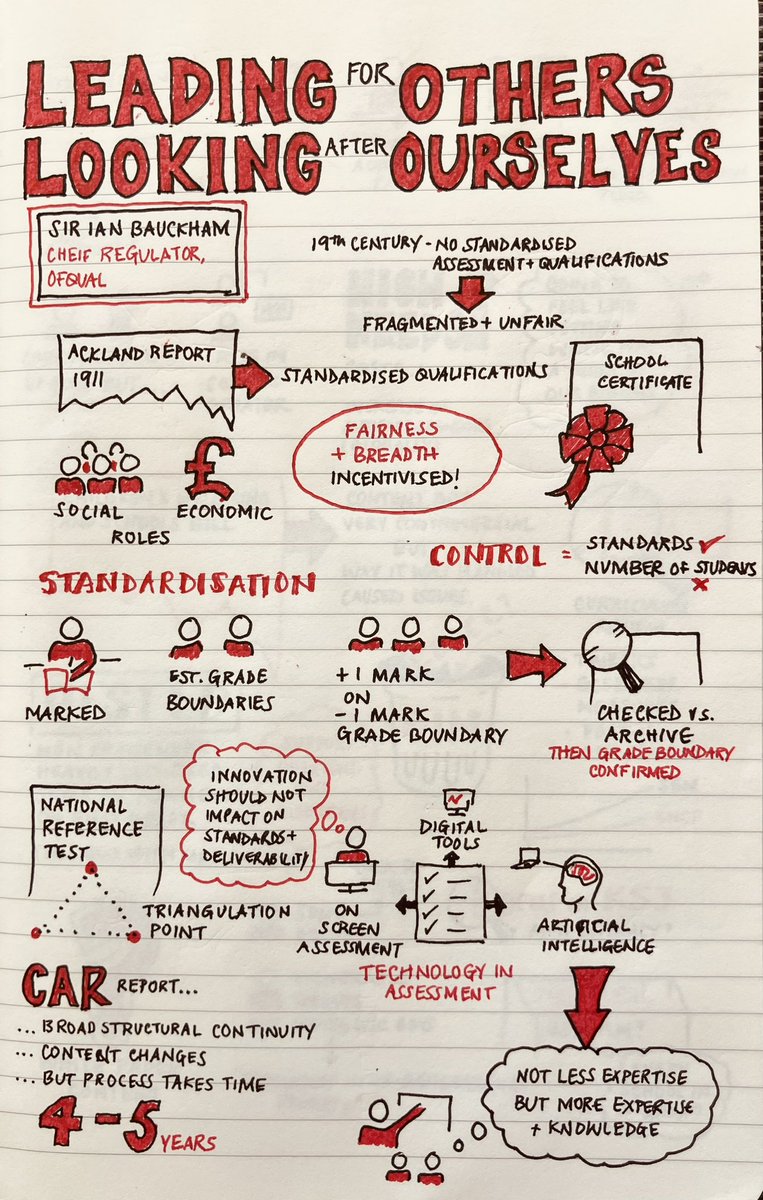 LEADING FOR OTHERS
LOOKING AFTER OURSELVES
SIR IAN BAUCKHAM
CHEIF REGULATOR,
OFQUAL
19TH CENTURY - NO STANDARDISED
ASSESSMENT + QUALIFICATIONS
FRAGMENTED + UNFAIR
ACKLAND REPORT
1911
STANDARDISED QUALIFICATIONS
SCHOOL
CERTIFICATE
FAIRNESS
+ BREADTH
INCENTIVISED!
£
SOCIAL ECONOMIC
ROLES
CONTROL = STANDARDS ✓
NUMBER OF STUDENTS
×
STANDARDISATION
MARKED
EST. GRADE
BOUNDARIES
+1 MARK
ON
-1 MARK
GRADE BOUNDARY
CHECKED VS.
ARCHIVE
THEN GRADE BOUNDARY
CONFIRMED
NATIONAL
REFERENCE
TEST
TRIANGULATION
POINT
INNOVATION
SHOULD NOT
IMPACT ON
STANDARDS +
DELIVERABILITY
ON
SCREEN
ASSESSMENT
DIGITAL
TOOLS
TECHNOLOGY IN
ASSESSMENT
ARTIFICIAL
INTELLIGENCE
CAR REPORT...
... BROAD STRUCTURAL CONTINUITY
... CONTENT CHANGES
... BUT PROCESS TAKES TIME
4-5 YEARS
NOT LESS EXPERTISE
BUT MORE EXPERTISE
+ KNOWLEDGE